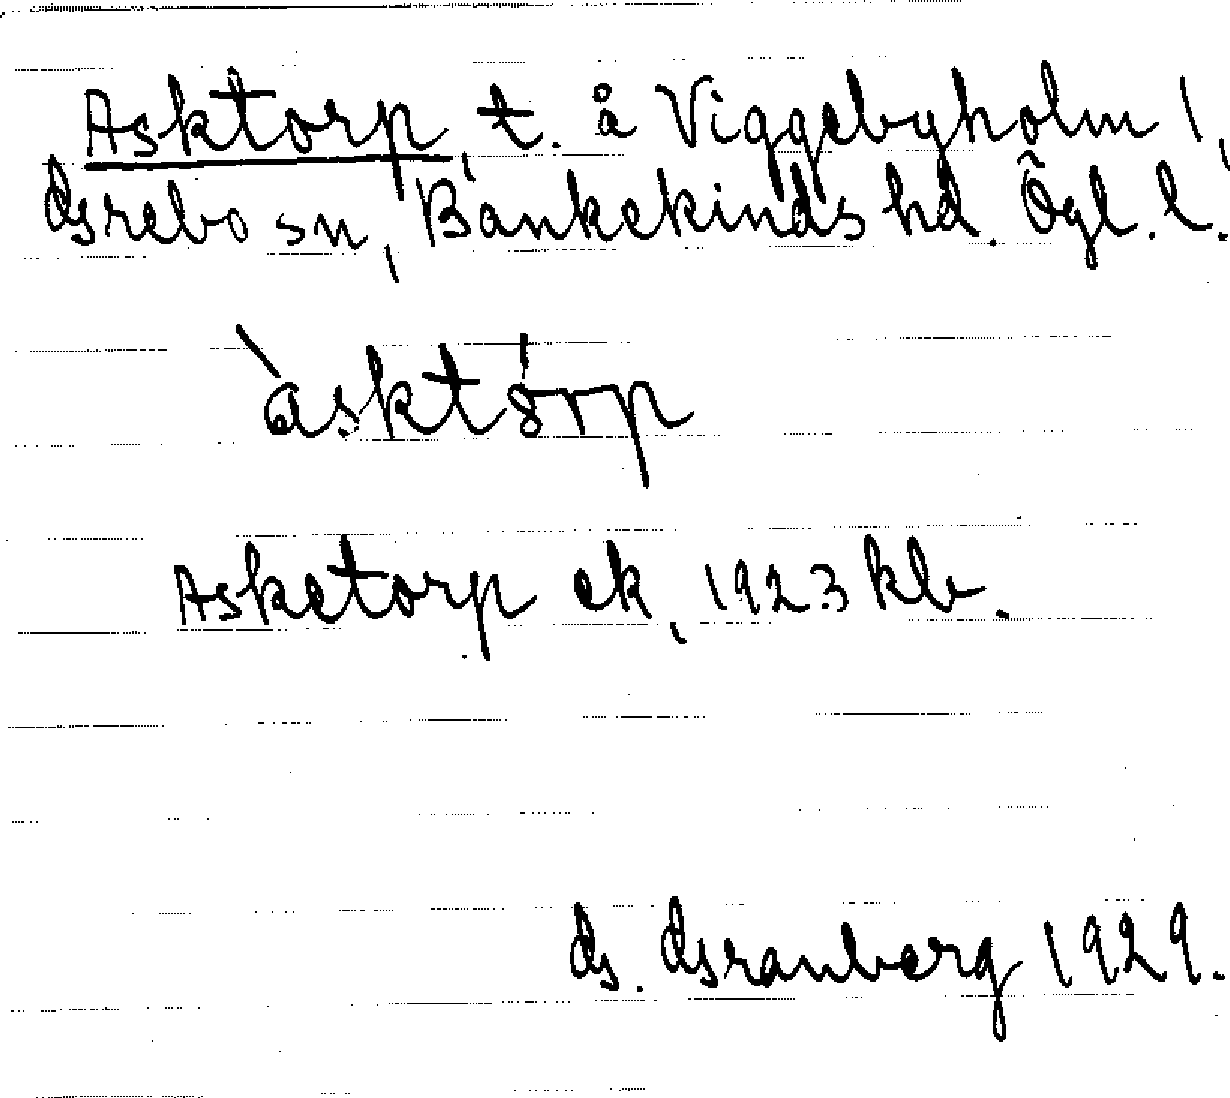 Asktorp, t. å Viggebyholm 1,
Grebo sn, Bankekinds hd. Ögl. l.
àsktórp
Asketorp ek, 1923 klv.
G. Granberg 1929.